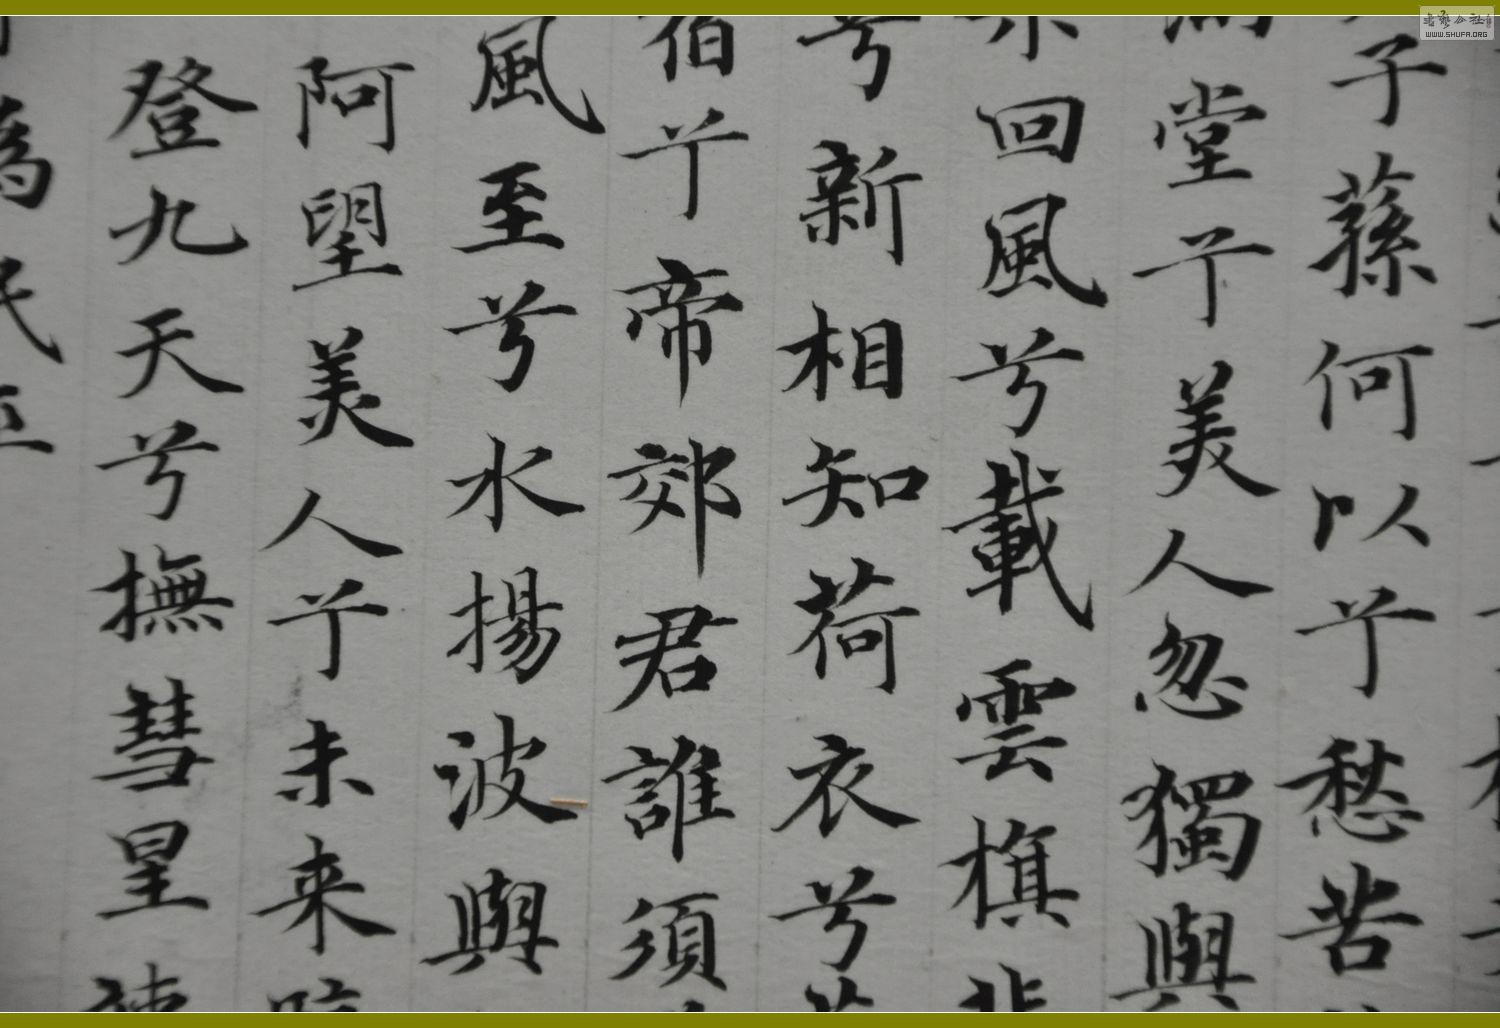 子蓀何以兮愁苦
堂兮美人忽獨與
回風兮載雲旗
兮新相知荷衣兮
伯兮帝郊君誰須
風至兮水揚波與
阿望美人兮未来
登九天兮撫彗星
WWW.SHUFA.ORG